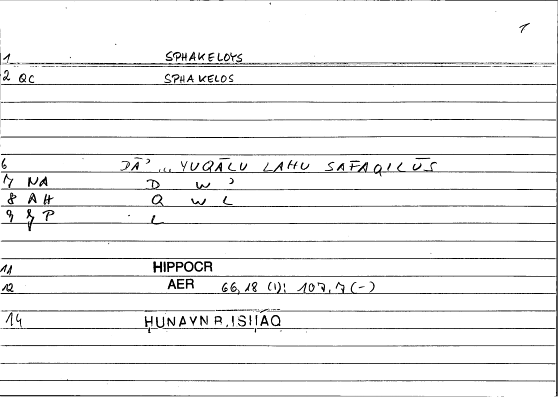 1
1 SPHAKELOYS
2 QC SPHAKELOS
6 DĀʾ ... YUQĀLU LAHU SAFĀQILŪS
7 NA D W ʾ
8 AH Q W L
9 P L
11 HIPPOCR
12 AER 66,18 (1); 107,7 (-)
14 ḤUNAYN B. ISḤĀQ